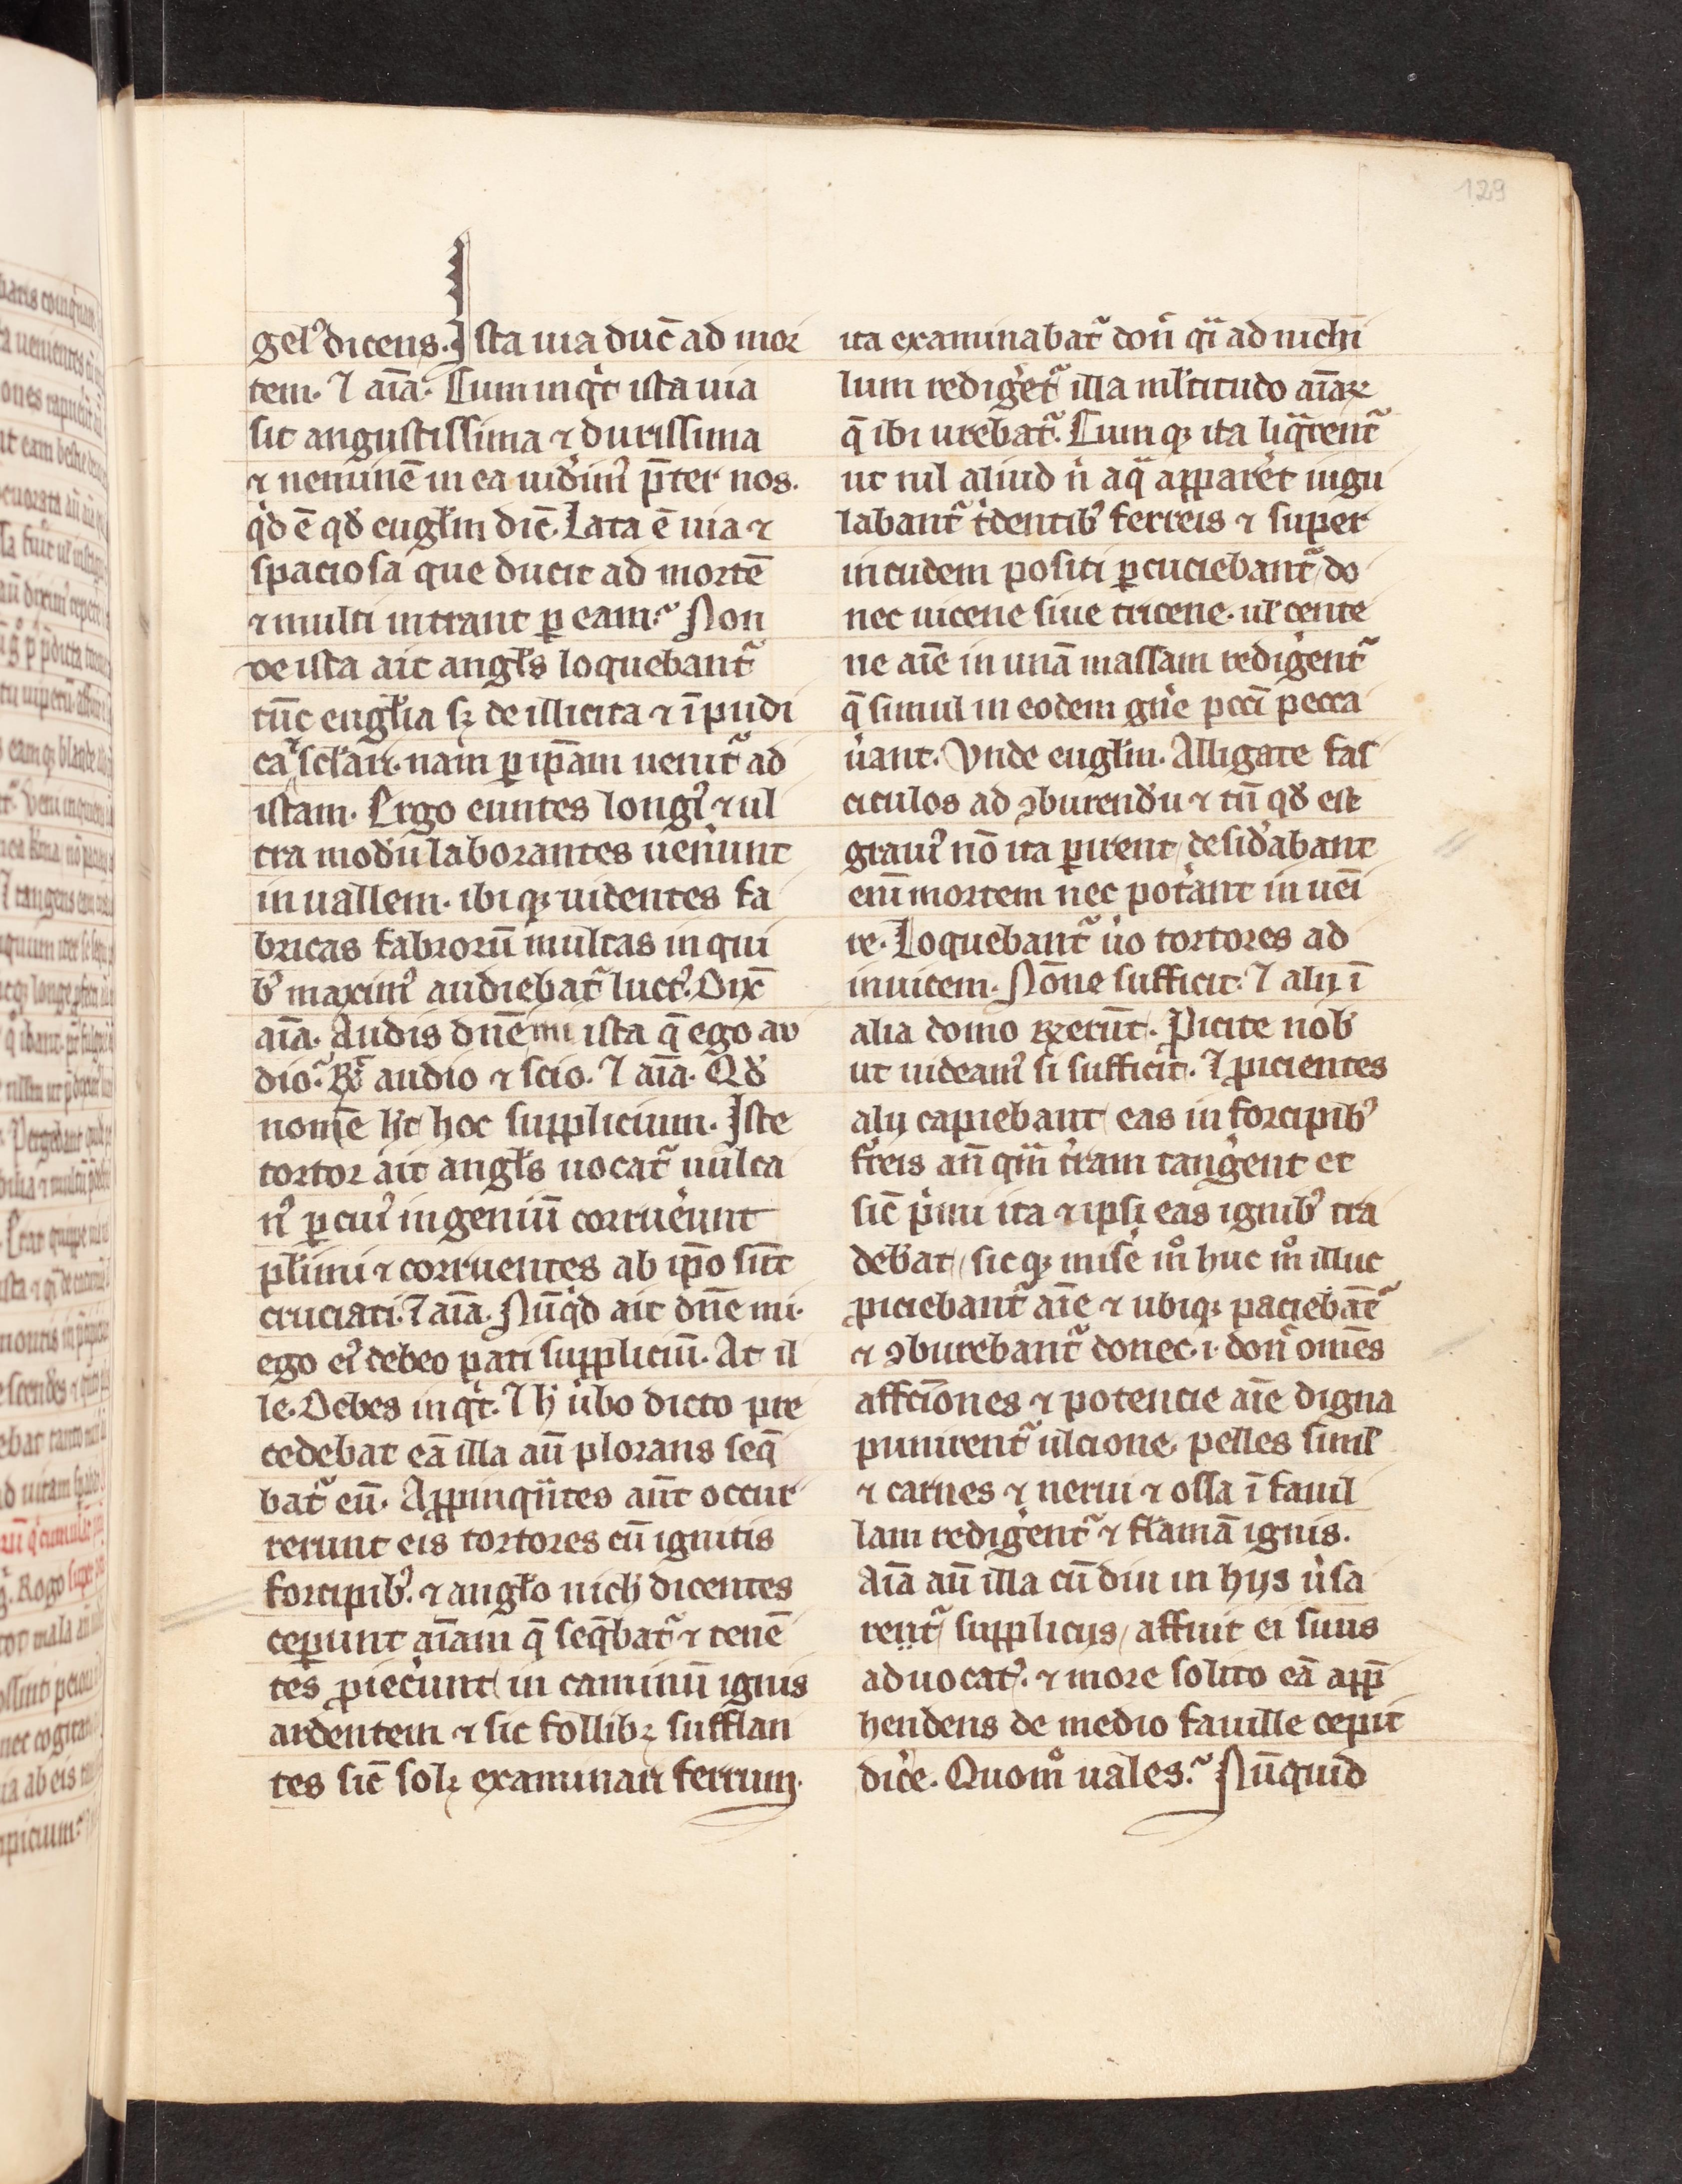 129
gelꝰ dicens. Ista uia duc̄ ad mor
tem. ⁊ aīa. Cum inqͥt ista uia
sit angustissima ⁊ durissima
⁊ neminē in ea uidimꝰ p̄ter nos.
qͥd ē qđ euglīm dic̄. Lata ē uia ⁊
spaciosa que ducit ad mortē
⁊ multi intrant ꝑ eam. Non
de ista ait angłs loquebantᷣ
tūc euglīa sꝫ de illicita ⁊ īpudi
ca sclari. nam ꝑ ip̄am uenitᷣ ad
istam. Ergo euntes longiꝰ ⁊ ul
tra modū laborantes uenūnt
in uallem. ibiqꝫ uidentes fa
bricas fabrorū multas in qui
bꝰ maximꝰ audiebatᷣ luctꝰ. Dix̄
aīa. Audis dn̄e mi ista q̄ ego au
dio. R̄ audio ⁊ scio. ⁊ aīa. Qđ
nomē ht̄ hoc supplicium. Iste
tortor ait angłs uocatᷣ uulca
nꝰ ꝑ cuiꝰ ingeniū corruerunt
plimi ⁊ corruentes ab ip̄o sūt
cruciati. ⁊ aīa. Nūqͥd ait dn̄e mi.
ego eiꝰ debeo pati suppliciū. At il
le. Debes inqͥt. ⁊ h̄ ubo dicto pre
cedebat eā illa aū plorans seq̄
batᷣ eū. Appinqntes aūt occur
rerunt eis tortores cū ignitis
forcipibꝰ. ⁊ angło nich̄ dicentes
ceperunt aīam q̄ seq̄batᷣ ⁊ tenē
tes ꝓiecerunt in caminū ignis
ardentem ⁊ sic follibꝫ sufflan
tes sic̄ solꝫ examinari ferrum.
ita examinabatᷣ don̄ qͣi ad nichi
lum redigeretᷣ illa ml̄titudo aīaꝝ
q̄ ibi urebatᷣ. Cumqꝫ ita liq̄rentᷣ
ut nil aliud nͥ aqͣ appareret iugu
labantᷣ tͥdentibꝰ ferreis ⁊ super
incudem positi ꝑcuciebantᷣ do
nec uicene siue tricene. ul̄ cente
ne aīe in unā massam redigerentᷣ
q̄ simul in eodem gn̄e pcc̄i pecca
uant. Vnde euglīm. Alligate fas
ciculos ad ꝯburendū ⁊ tn̄ qđ est
grauiꝰ nō ita ꝑirent desid̓abant
enī mortem nec pot̓ant inueī
re. Loquebantᷣ uͦo tortores ad
inuicem. Nōne sufficit. ⁊ alij ī
alia domo Rx̄erūt. Ꝓicite nobꝰ
ut uideamꝰ si sufficit. ⁊ ꝓicientes
alij capiebant eas in forcipibꝰ
ferreis an̄ qͣm terram tangerent et
sic̄ pͥmi ita ⁊ ipsi eas ignibꝰ tra
debāt, sicqꝫ misere mͦ huc mͦ illuc
ꝓiciebantᷣ aīe ⁊ ubiqꝫ paciebātᷣ
⁊ ꝯburebantᷣ donec .i. don̄ omēs
affcīones ⁊ potencie aīe digna
punirentᷣ ulcione. pelles simł
⁊ carnes ⁊ nerui ⁊ ossa ī fauil
lam redigerentᷣ ⁊ flāmā ignis.
Aīa aū illa cū diu in hijs uͥsa
rentᷣ supplicijs, affuit ei suus
aduocatꝰ. ⁊ more solito eā app̄
hendens de medio fauille cepit
dice̓. Quomͦ uales. Nūquid